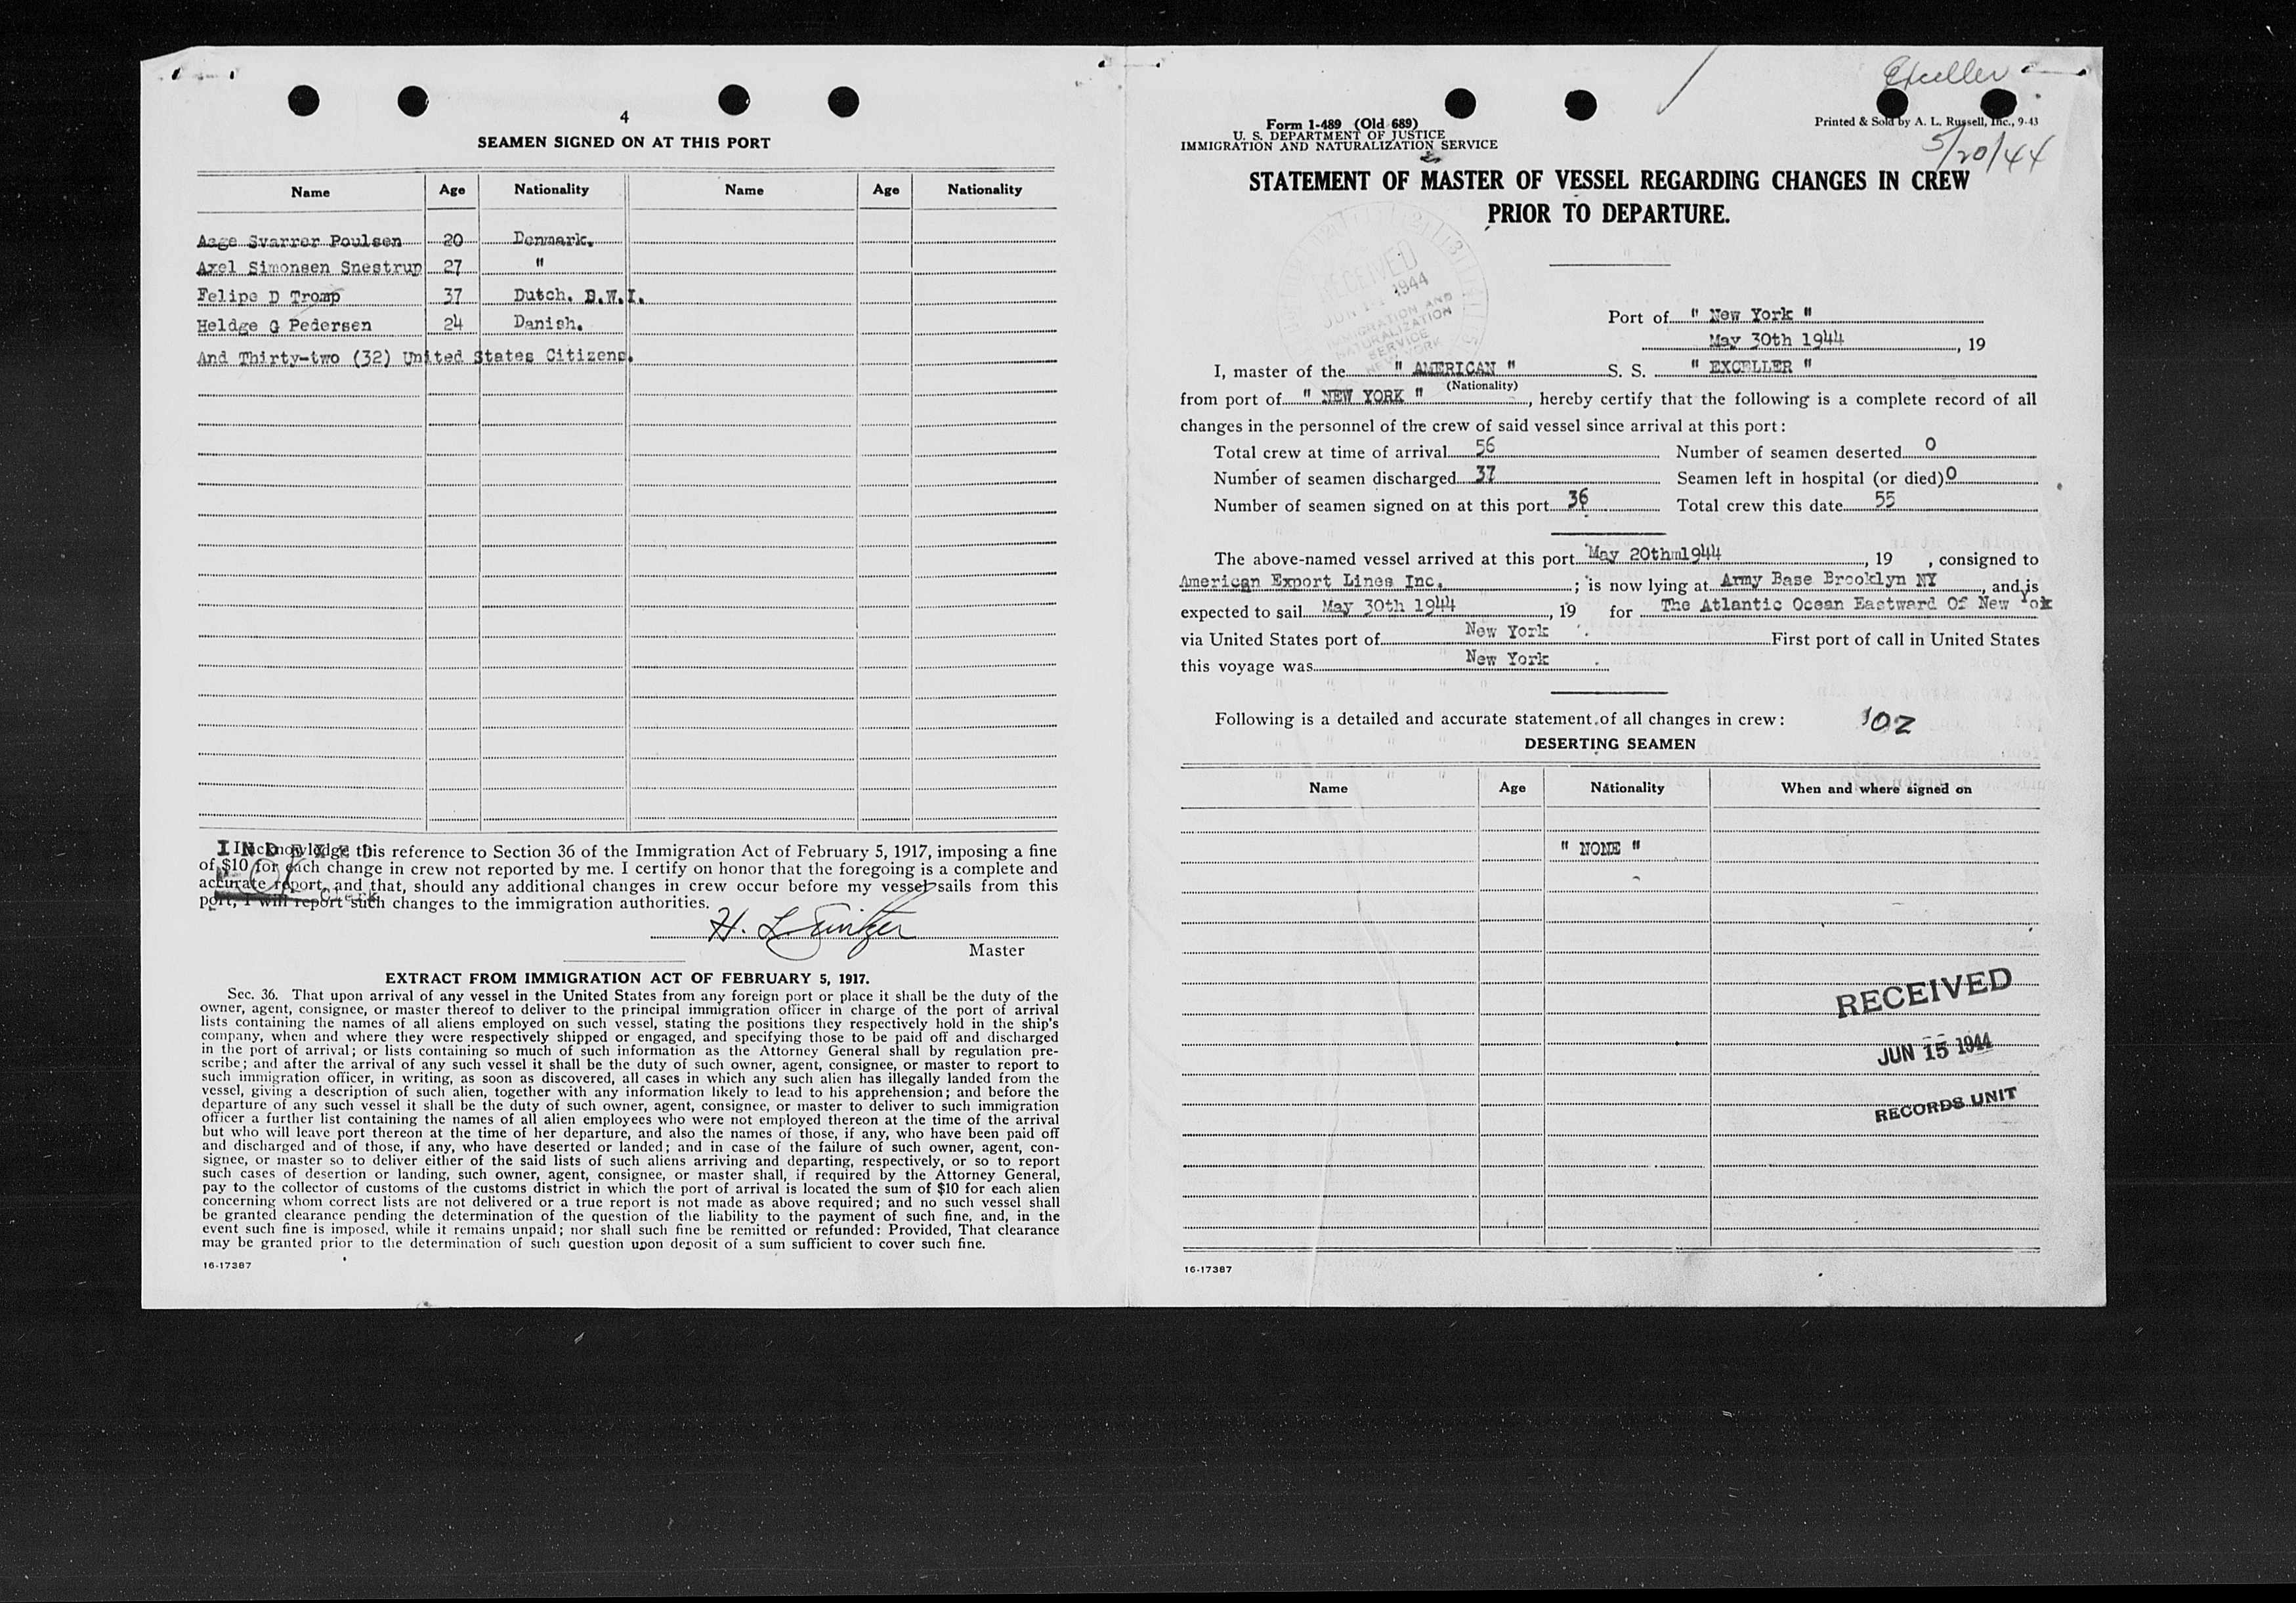 4
SEAMEN SIGNED ON AT THIS PORT
Name Age Nationality Name Age Nationality
Aage Svarrer Poulsen 20 Denmark.
Axel Simonsen Snestrup 27 "
Felipe D Tromp 37 Dutch. D.W.I.
Heldge G Pedersen 24 Danish.
And Thirty-two (32) United States Citizens.
INDEXED
I acknowledge this reference to Section 36 of the Immigration Act of February 5, 1917, imposing a fine
of $10 for each change in crew not reported by me. I certify on honor that the foregoing is a complete and
accurate report, and that, should any additional changes in crew occur before my vessel sails from this
port, I will report such changes to the immigration authorities.
Clerk
H. L.
Master
EXTRACT FROM IMMIGRATION ACT OF FEBRUARY 5, 1917.
Sec. 36. That upon arrival of any vessel in the United States from any foreign port or place it shall be the duty of the
owner, agent, consignee, or master thereof to deliver to the principal immigration officer in charge of the port of arrival
lists containing the names of all aliens employed on such vessel, stating the positions they respectively hold in the ship's
company, when and where they were respectively shipped or engaged, and specifying those to be paid off and discharged
in the port of arrival; or lists containing so much of such information as the Attorney General shall by regulation pre-
scribe; and after the arrival of any such vessel it shall be the duty of such owner, agent, consignee, or master to report to
such immigration officer, in writing, as soon as discovered, all cases in which any such alien has illegally landed from the
vessel, giving a description of such alien, together with any information likely to lead to his apprehension; and before the
departure of any such vessel it shall be the duty of such owner, agent, consignee, or master to deliver to such immigration
officer a further list containing the names of all alien employees who were not employed thereon at the time of the arrival
but who will leave port thereon at the time of her departure, and also the names of those, if any, who have been paid off
and discharged and of those, if any, who have deserted or landed; and in case of the failure of such owner, agent, con-
signee, or master so to deliver either of the said lists of such aliens arriving and departing, respectively, or so to report
such cases of desertion or landing, such owner, agent, consignee, or master shall, if required by the Attorney General,
pay to the collector of customs of the customs district in which the port of arrival is located the sum of $10 for each alien
concerning whom correct lists are not delivered or a true report is not made as above required; and no such vessel shall
be granted clearance pending the determination of the question of the liability to the payment of such fine, and, in the
event such fine is imposed, while it remains unpaid; nor shall such fine be remitted or refunded: Provided, That clearance
may be granted prior to the determination of such question upon deposit of a sum sufficient to cover such fine.
16-17387
Exceller
Form 1-489 (Old 689)
U. S. DEPARTMENT OF JUSTICE
IMMIGRATION AND NATURALIZATION SERVICE
Printed & Sold by A. L. Russell, Inc., 9-43
5/20/44
STATEMENT OF MASTER OF VESSEL REGARDING CHANGES IN CREW
PRIOR TO DEPARTURE.
RECEIVED
JUN 1944
IMMIGRATION AND
NATURALIZATION
SERVICE
NEW YORK
Port of " New York "
May 30th 1944, 19
I, master of the " AMERICAN " S. S. " EXCELLER "
(Nationality)
from port of " NEW YORK ", hereby certify that the following is a complete record of all
changes in the personnel of the crew of said vessel since arrival at this port:
Total crew at time of arrival 56 Number of seamen deserted 0
Number of seamen discharged 37 Seamen left in hospital (or died) 0
Number of seamen signed on at this port 36 Total crew this date 55
The above-named vessel arrived at this port May 20thm1944, 19 , consigned to
American Export Lines Inc. ; is now lying at Army Base Brooklyn NY, and is
expected to sail May 30th 1944, 19 for The Atlantic Ocean Eastward Of New Yok
via United States port of New York First port of call in United States
this voyage was New York
Following is a detailed and accurate statement of all changes in crew: 102
DESERTING SEAMEN
Name Age Nationality When and where signed on
" NONE "
RECEIVED
JUN 15 1944
RECORDS UNIT
16-17387